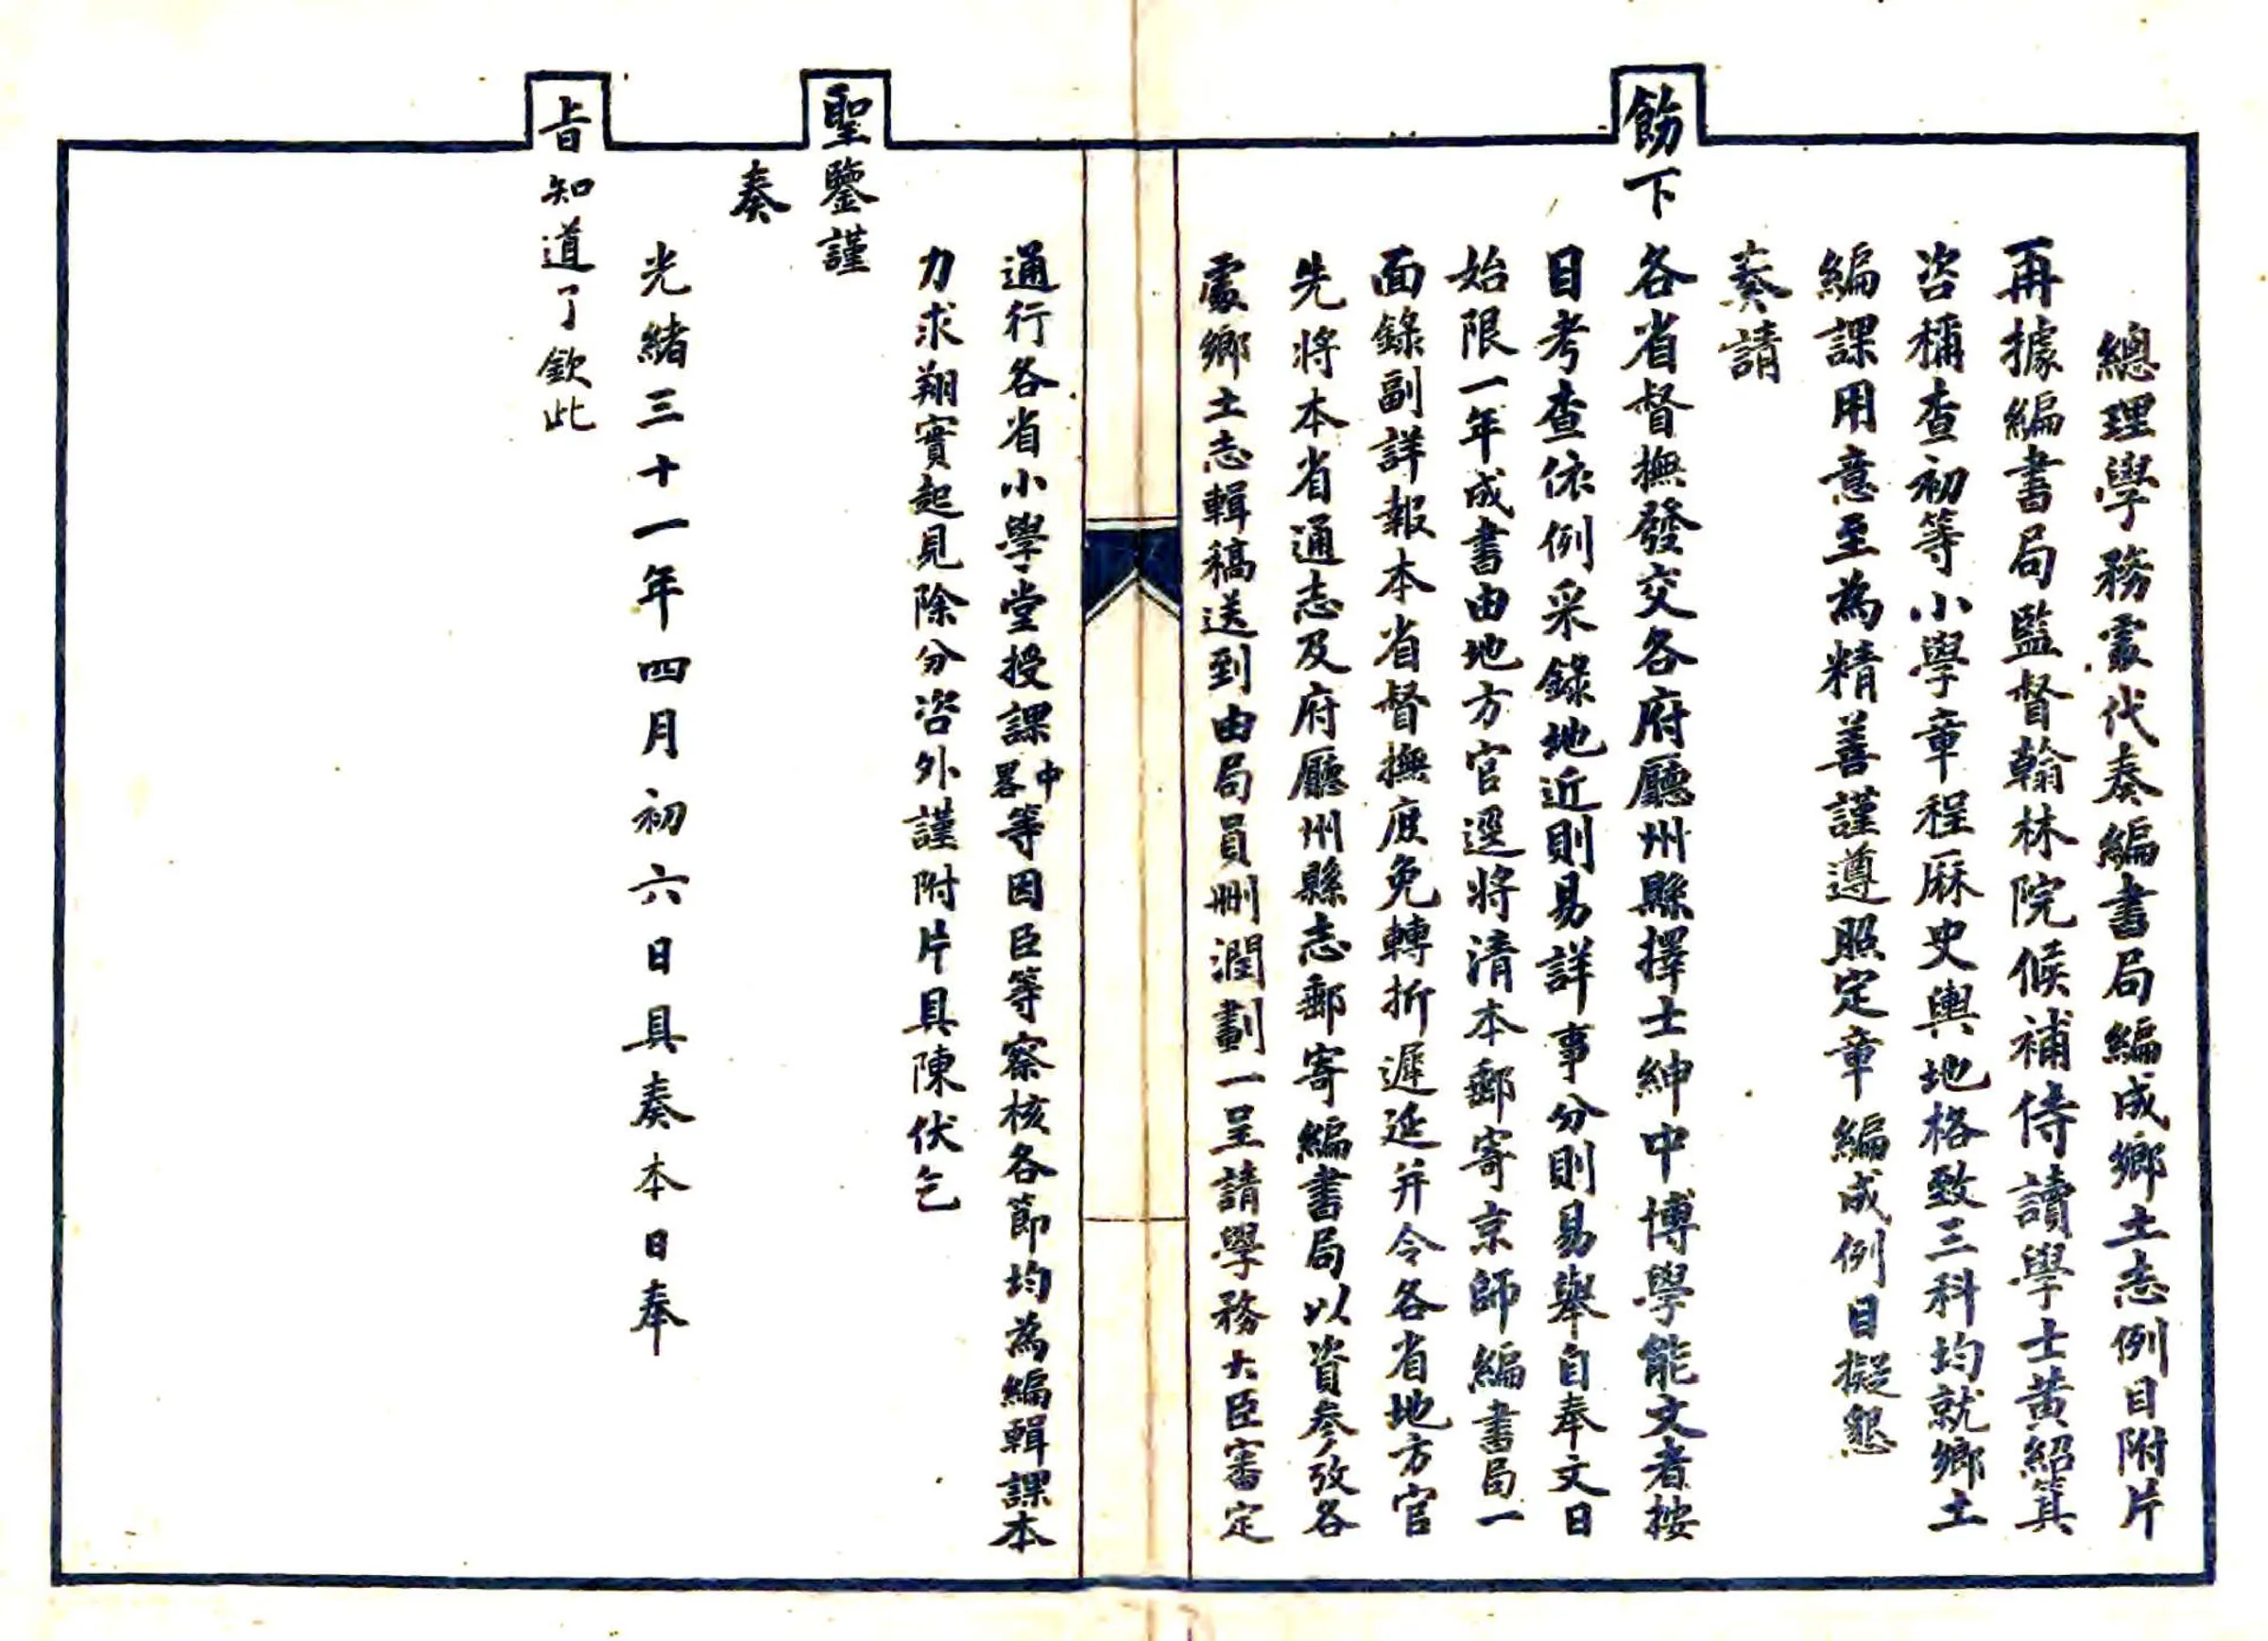 總理學務處代奏編書局編成鄉土志例目附片
再據編書局監督翰林院候補侍讀學士黃紹箕
咨稱查初等小學章程厤史輿地格致三科均就鄉土
編課用意至為精善謹遵照定章編成例目擬懇
奏請
飭下各省督撫發交各府廳州縣擇士紳中博學能文者按
目考查依例采錄地近則易詳事分則易舉自奉文日
始限一年成書由地方官逕將清本郵寄京師編書局一
面錄副詳報本省督撫庶免轉折遲延并令各省地方官
先將本省通志及府廳州縣志郵寄編書局以資參攷各
處鄉土志輯稿送到由局員刪潤劃一呈請學務大臣審定
通行各省小學堂授課中畧等因臣等察核各節均為編輯課本
力求翔實起見除分咨外謹附片具陳伏乞
聖鑒謹
奏
光緒三十一年四月初六日具奏本日奉
旨知道了欽此